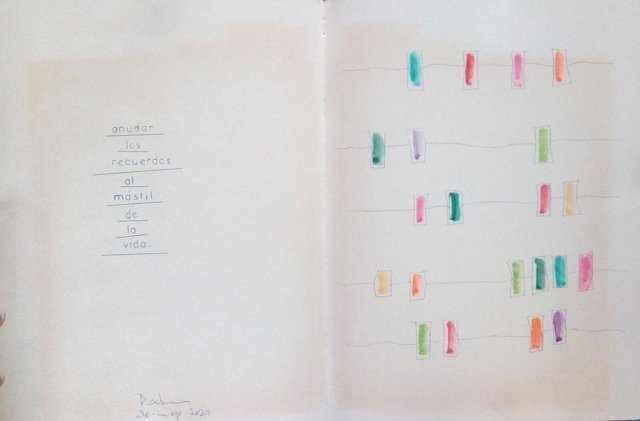 anudar
los
recuerdos
al
mástil
de
la
vida.
2020